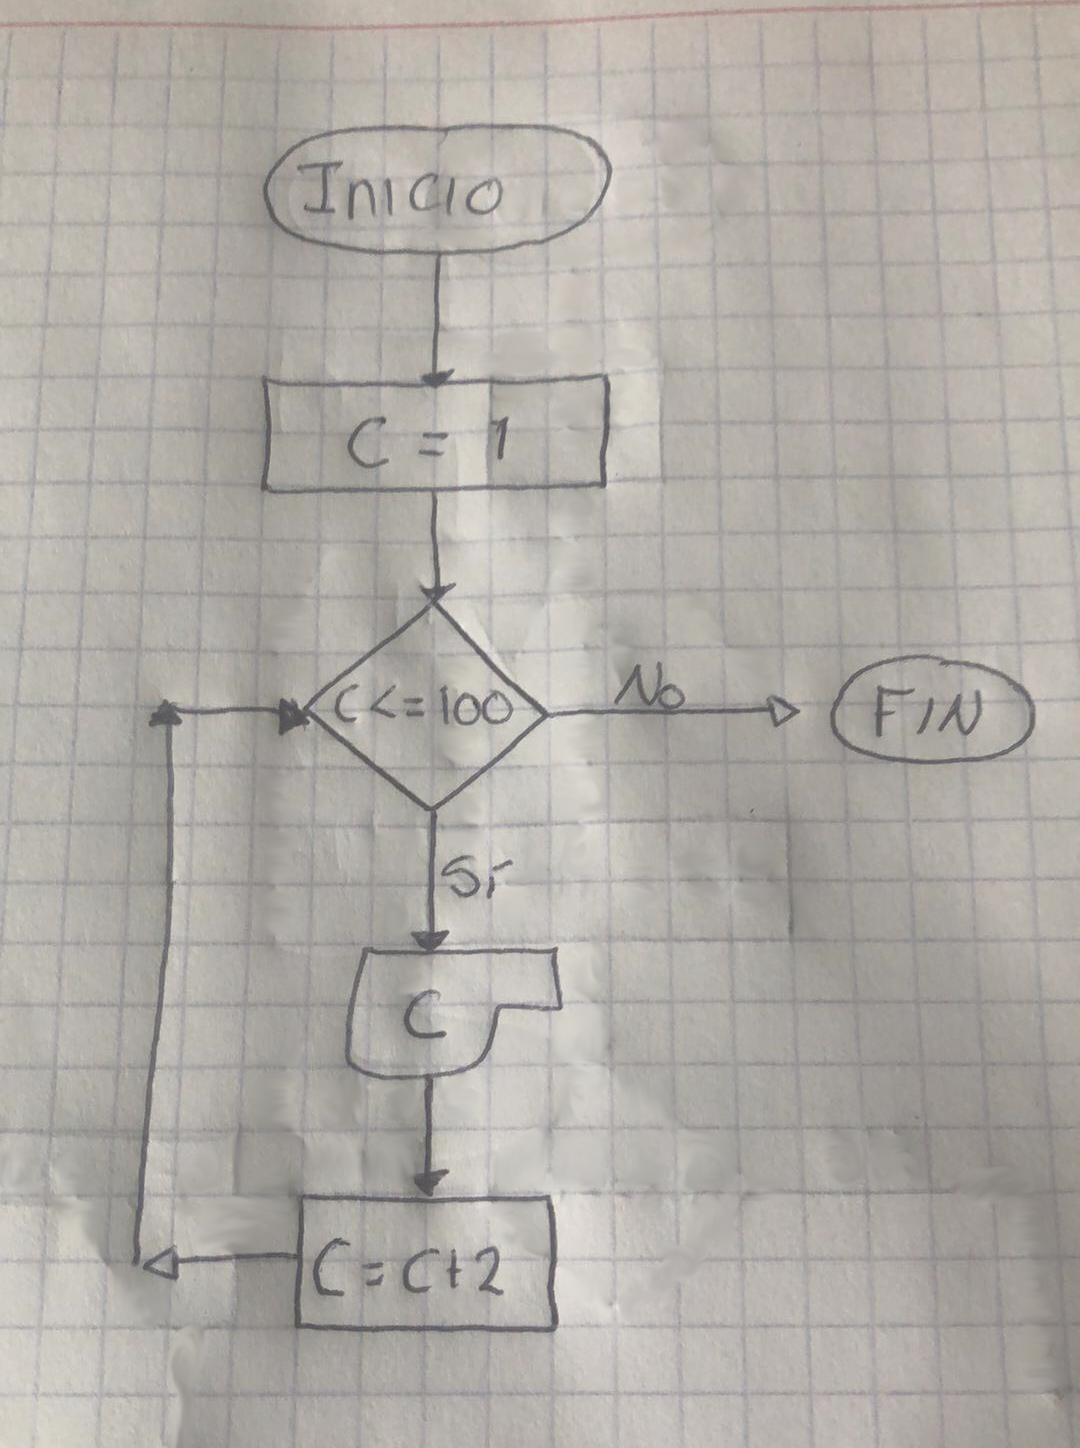 Inicio
C = 1
C <= 100
No
FIN
Sí
C
C = C + 2